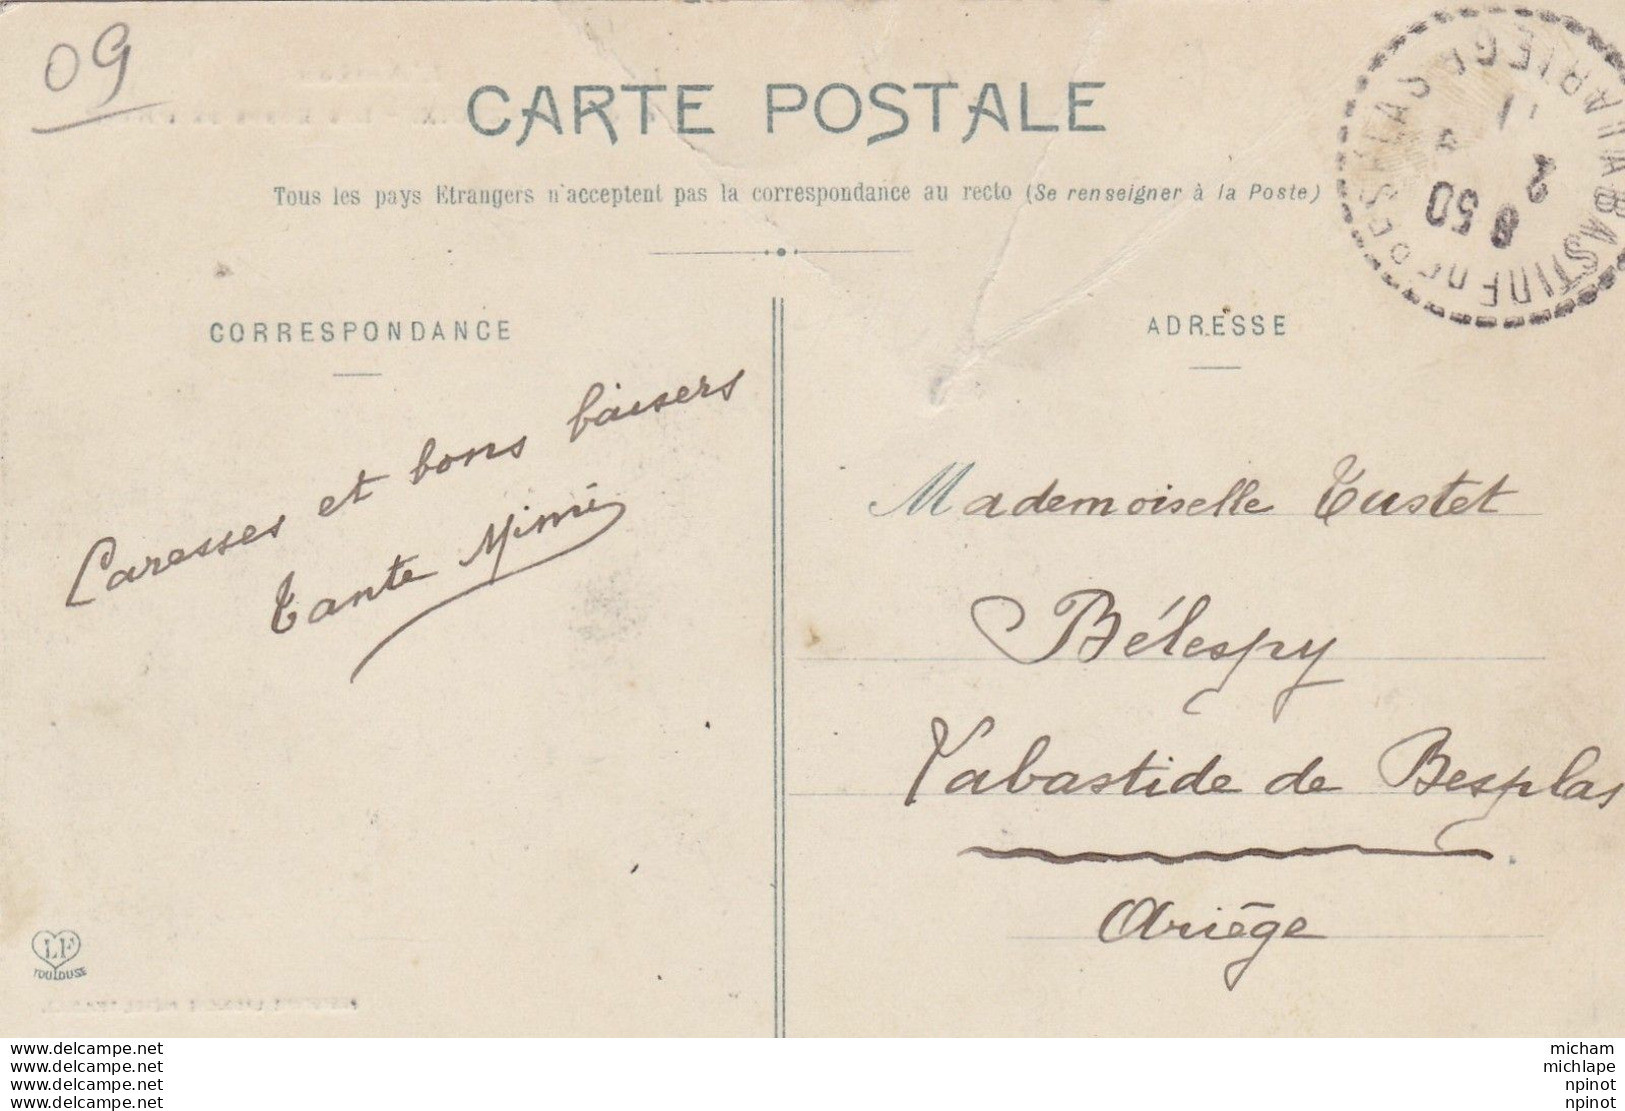 09
CARTE POSTALE
Tous les pays Etrangers n'acceptent pas la correspondance au recto (Se renseigner à la Poste)
LABASTIDE DE BESPLAS ARIEGE
8 50
2
4
11
CORRESPONDANCE
Caresses et bons baisers
Tante Mimi
ADRESSE
Mademoiselle Tustet
Bélespy
Labastide de Besplas
Ariège
LF
TOULOUSE
www.delcampe.net
www.delcampe.net
www.delcampe.net
www.delcampe.net
micham
michlape
npinot
npinot